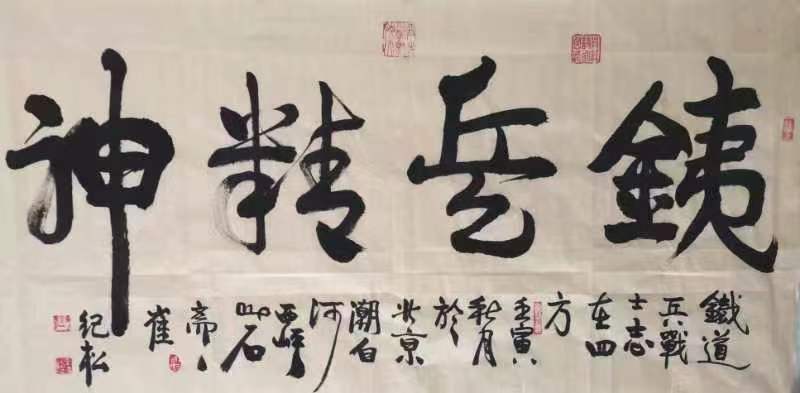 銕兵精神
鐵道
兵戰
士志
在四
方
壬寅
秋月
於
北京
潮白
河
西岸
石
斋
崔
纪松